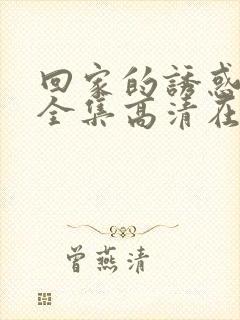 回家的誘惑
全集高清在
曾燕清